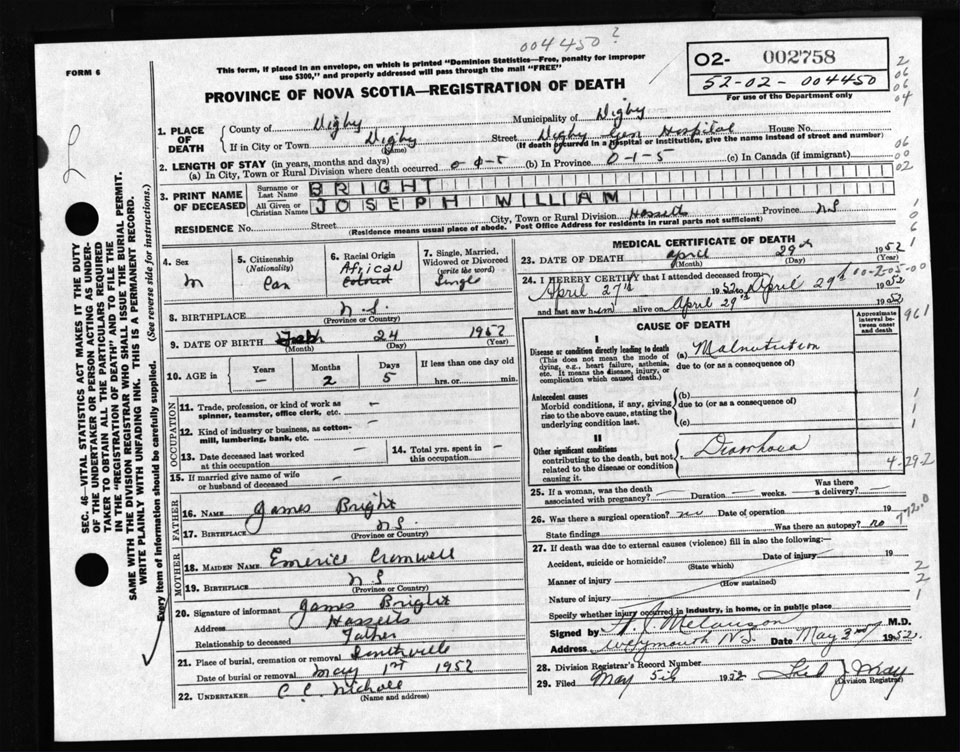 004450?
FORM 6
This form, if placed in an envelope, on which is printed "Dominion Statistics—Free, penalty for improper
use $300," and properly addressed will pass through the mail "FREE"
PROVINCE OF NOVA SCOTIA—REGISTRATION OF DEATH
02- 002758
52-02-004450
For use of the Department only
2
06
06
04
06
00
02
SEC. 46—VITAL STATISTICS ACT MAKES IT THE DUTY
OF THE UNDERTAKER OR PERSON ACTING AS UNDER-
TAKER TO OBTAIN ALL THE PARTICULARS REQUIRED
IN THE "REGISTRATION OF DEATH" AND TO FILE THE
SAME WITH THE DIVISION REGISTRAR WHO SHALL ISSUE THE BURIAL PERMIT.
WRITE PLAINLY WITH UNFADING INK. THIS IS A PERMANENT RECORD.
Every item of information should be carefully supplied. (See reverse side for instructions.)
1. PLACE OF DEATH
County of Digby Municipality of Digby
If in City or Town Digby (Name) Street Digby Gen Hospital House No.
(If death occurred in a hospital or institution, give the name instead of street and number)
2. LENGTH OF STAY (in years, months and days)
(a) In City, Town or Rural Division where death occurred (b) In Province 0-1-5 (c) In Canada (if immigrant)
3. PRINT NAME OF DECEASED
Surname or Last Name BRIGHT
All Given or Christian Names JOSEPH WILLIAM
RESIDENCE No. Street City, Town or Rural Division Province N.S
(Residence means usual place of abode. Post Office Address for residents in rural parts not sufficient)
4. Sex M
5. Citizenship (Nationality) Can
6. Racial Origin African
7. Single, Married, Widowed or Divorced (write the word) Single
8. BIRTHPLACE N.S. (Province or Country)
9. DATE OF BIRTH Feb (Month) 24 (Day) 1952 (Year)
10. AGE in Years — Months 2 Days 5 If less than one day old hrs. or min.
OCCUPATION
11. Trade, profession, or kind of work as spinner, teamster, office clerk, etc. —
12. Kind of industry or business, as cotton-mill, lumbering, bank, etc. —
13. Date deceased last worked at this occupation — 14. Total yrs. spent in this occupation —
15. If married give name of wife or husband of deceased —
FATHER
16. NAME James Bright
17. BIRTHPLACE N.S. (Province or Country)
MOTHER
18. MAIDEN NAME Cromwell
19. BIRTHPLACE N S (Province or Country)
20. Signature of informant James Bright
Address Hassetts
Relationship to deceased Father
21. Place of burial, cremation or removal
Date of burial or removal May 1st 1952
22. UNDERTAKER C. C. Nicholl
(Name and address)
MEDICAL CERTIFICATE OF DEATH
23. DATE OF DEATH April (Month) 29 (Day) 1952 (Year)
24. I HEREBY CERTIFY that I attended deceased from
April 27th 1952 to April 29th 1952
and last saw him alive on April 29th 1952
CAUSE OF DEATH
Approximate interval between onset and death
I
Disease or condition directly leading to death
(This does not mean the mode of dying, e.g., heart failure, asthenia, etc. It means the disease, injury, or complication which caused death.)
(a) Malnutrition
due to (or as a consequence of)
Antecedent causes
Morbid conditions, if any, giving rise to the above cause, stating the underlying condition last.
(b)
due to (or as a consequence of)
(c)
II
Other significant conditions
contributing to the death, but not related to the disease or condition causing it.
Diarrhoea
4-29-2
25. If a woman, was the death associated with pregnancy? — Duration — weeks. Was there a delivery? —
26. Was there a surgical operation? no Date of operation 19
State findings Was there an autopsy? no
27. If death was due to external causes (violence) fill in also the following:—
Accident, suicide or homicide? (State which) Date of injury 19
Manner of injury (How sustained)
Nature of injury
Specify whether injury occurred in industry, in home, or in public place
Signed by Melanson M.D.
Address Weymouth N.S. Date May 3rd 1952
28. Division Registrar's Record Number
29. Filed May 5th 1952
(Division Registrar)